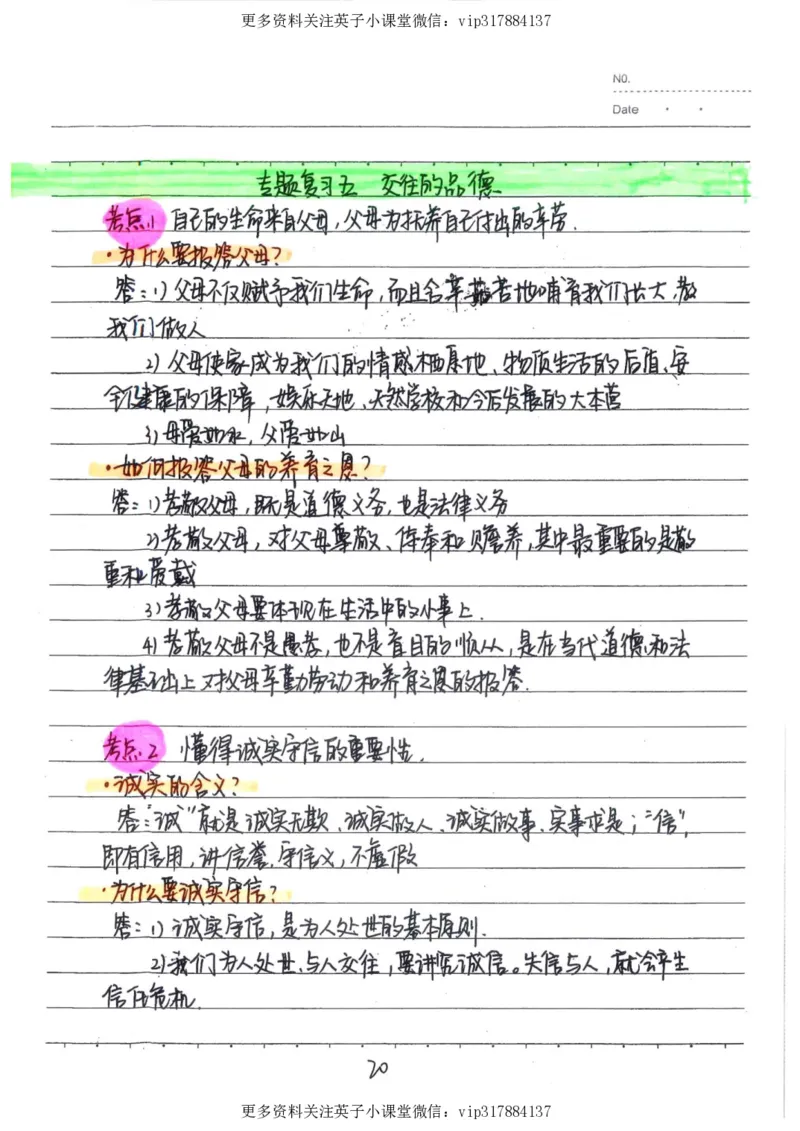 更多资料关注英子小课堂微信：vip317884137
NO.
Date
专题复习五 交往的品德
考点1 自己的生命来自父母，父母为抚养自己付出的辛劳.
·为什么要报答父母？
答：1)父母不仅赋予我们生命，而且含辛茹苦地哺育我们长大，教
我们做人
2)父母使家成为我们的情感栖息地、物质生活的后盾、安
全健康的保障，娱乐天地、天然学校和今后发展的大本营
3)母爱如水，父爱如山
·如何报答父母的养育之恩？
答：1)孝敬父母，既是道德义务，也是法律义务
2)孝敬父母，对父母尊敬、侍奉和赡养，其中最重要的是敬
重和爱戴
3)孝敬父母要体现在生活中的小事上.
4)孝敬父母不是愚孝，也不是盲目的顺从，是在当代道德和法
律基础上对父母辛勤劳动和养育之恩的报答.
考点2 懂得诚实守信的重要性.
·诚实的含义？
答："诚"就是诚实无欺、诚实做人、诚实做事、实事求是；"信"，
即有信用，讲信誉，守信义，不虚假
·为什么要诚实守信？
答：1)诚实守信，是为人处世的基本原则.
2)我们为人处世、与人交往，要讲究诚信。失信与人，就会产生
信任危机.
20
更多资料关注英子小课堂微信：vip317884137